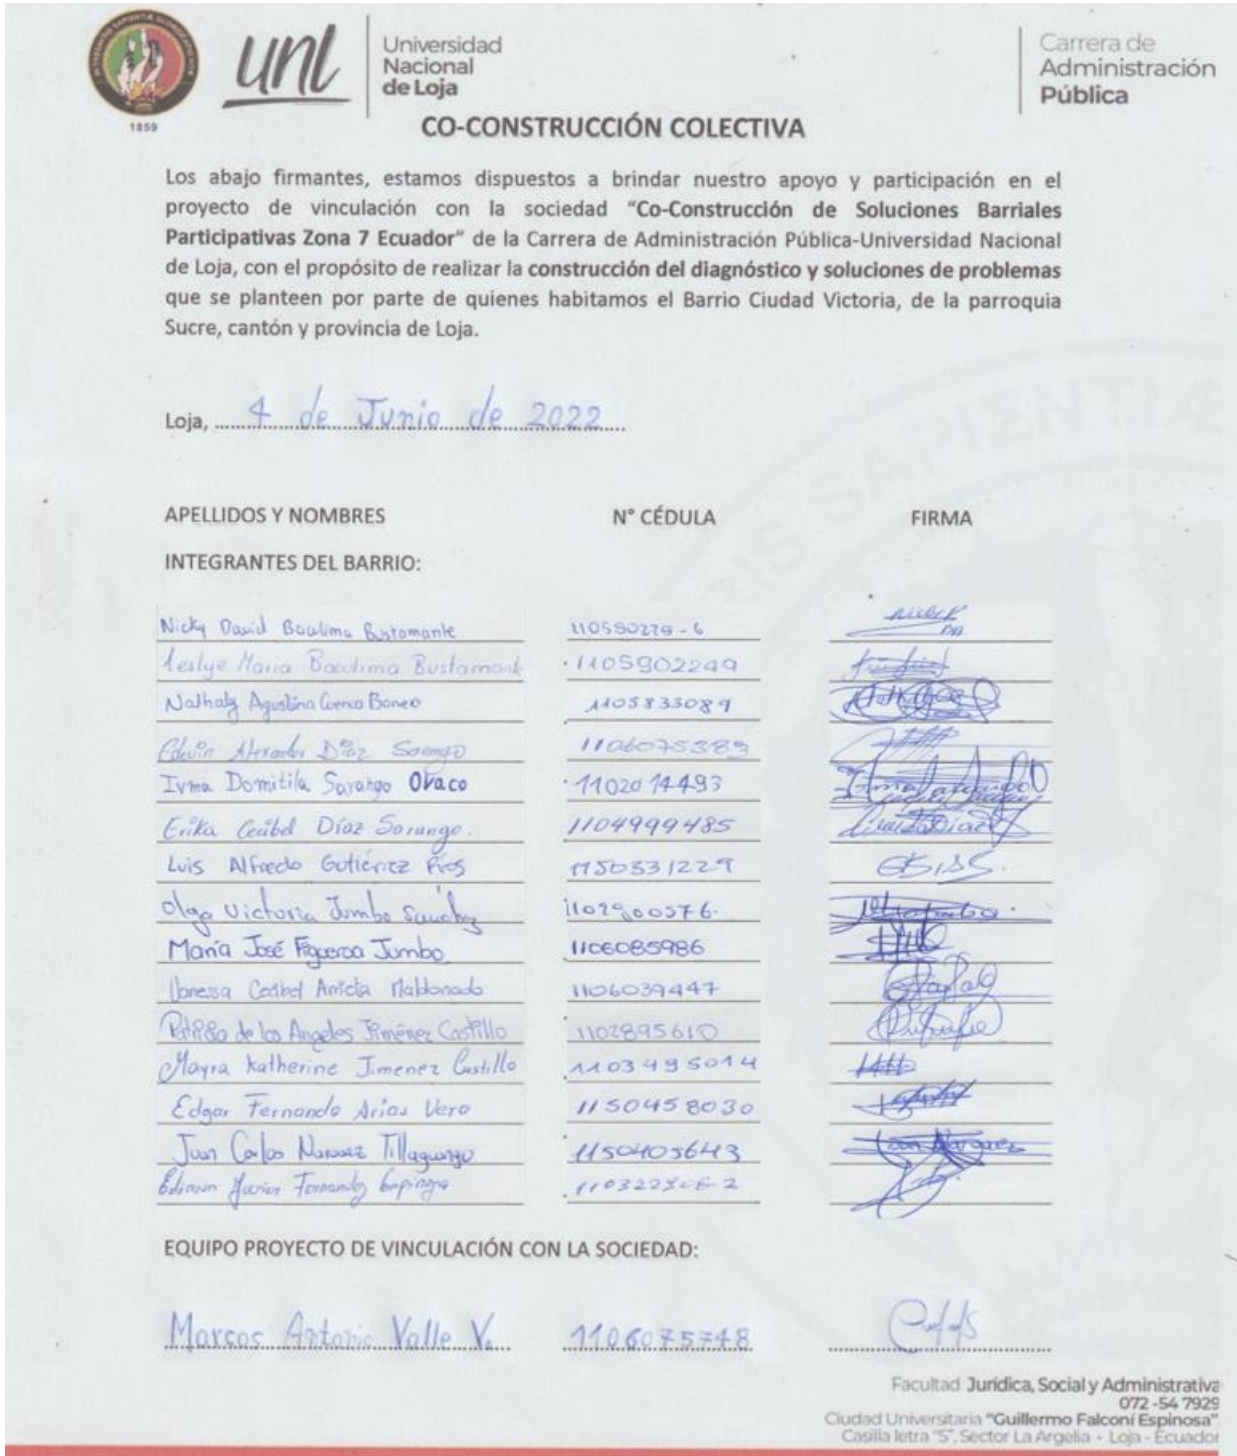 unl
Universidad
Nacional
de Loja
Carrera de
Administración
Pública
1859
CO-CONSTRUCCIÓN COLECTIVA
Los abajo firmantes, estamos dispuestos a brindar nuestro apoyo y participación en el
proyecto de vinculación con la sociedad "Co-Construcción de Soluciones Barriales
Participativas Zona 7 Ecuador" de la Carrera de Administración Pública-Universidad Nacional
de Loja, con el propósito de realizar la construcción del diagnóstico y soluciones de problemas
que se planteen por parte de quienes habitamos el Barrio Ciudad Victoria, de la parroquia
Sucre, cantón y provincia de Loja.
Loja, 4 de Junio de 2022
APELLIDOS Y NOMBRES N° CÉDULA FIRMA
INTEGRANTES DEL BARRIO:
Nicky David Bustamante 110590229-6
Leslye Maria Bustamante 1105902249
Nathaly Agustina Cuenca 1105833089
Edwin Díaz 1106075389
Domitila Sarango Ovaco 1102014493
Erika Díaz Sarango. 1104999485
Luis Alfredo Gutiérrez 1150331229
Olga Victoria Jumbo
María José Figueroa Jumbo 1106085986
Vanessa Maldonado 1106039447
de los Angeles Jiménez Castillo 1102895610
Mayra Katherine Jimenez Castillo 1103495014
Edgar Fernando Arias Vera 1150458030
Juan Carlos 1150405643
EQUIPO PROYECTO DE VINCULACIÓN CON LA SOCIEDAD:
Marcos Antonio Valle V. 1106075748
Facultad Jurídica, Social y Administrativa
072 -54 7929
Ciudad Universitaria "Guillermo Falconí Espinosa"
Casilla letra "S", Sector La Argelia - Loja - Ecuador